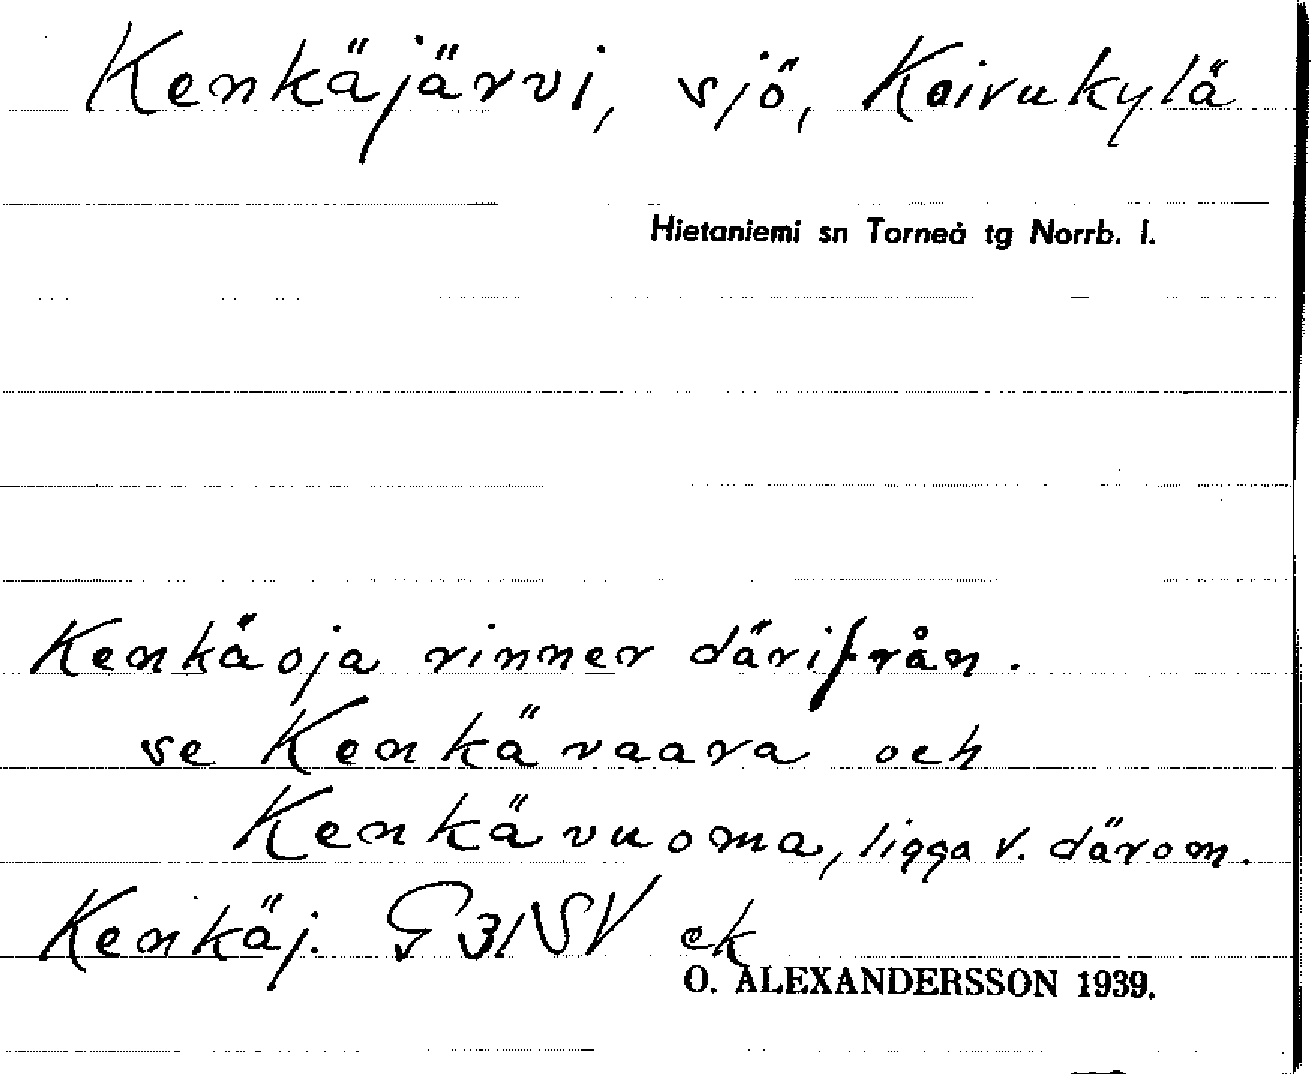 Kenkäjärvi, sjö, Koivukylä
Hietaniemi sn Torneå tg Norrb. l.
Kenkäoja rinner därifrån.
se Kenkävaara och
Kenkävuoma, ligga v. därom.
Kenkäj. G 31 SV ek
O. ALEXANDERSSON 1939.